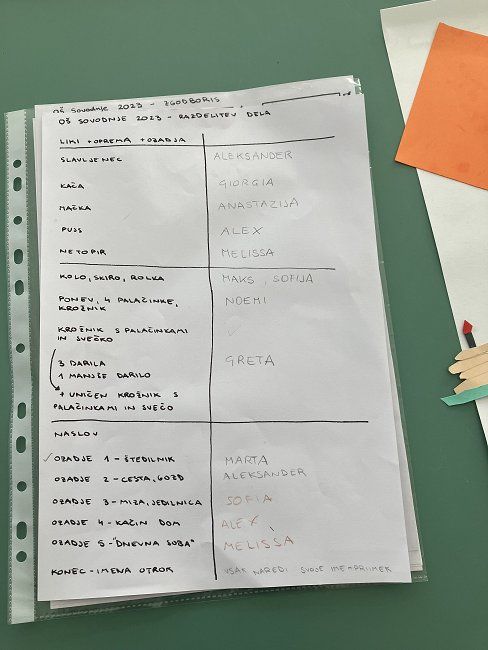 OŠ SOVODNJE 2023 - ZGODBORIS
OŠ SOVODNJE 2023 - RAZDELITEV DELA
LIKI + OPREMA + OZADJA
SLAVLJENEC ALEKSANDER
KAČA GIORGIA
MAČKA ANASTAZIJA
PUJS ALEX
NETOPIR MELISSA
KOLO, SKIRO, ROLKA MAKS, SOFIJA
PONEV, 4 PALAČINKE, NOEMI
KROŽNIK
KROŽNIK S PALAČINKAMI
IN SVEČKO
3 DARILA GRETA
1 MANJŠE DARILO
+ UNIČEN KROŽNIK S
PALAČINKAMI IN SVEČO
NASLOV
✓ OZADJE 1 - ŠTEDILNIK MARTA
OZADJE 2 - CESTA, GOZD ALEKSANDER
OZADJE 3 - MIZA, JEDILNICA SOFIA
OZADJE 4 - KAČIN DOM ALEX
OZADJE 5 - "DNEVNA SOBA" MELISSA
KONEC - IMENA OTROK VSAK NAREDI SVOJE IME PRIIMEK